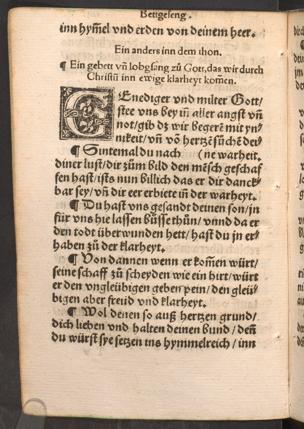 Bettgeseng.
inn hym̃el vnd erden von deinem heer.
Ein anders inn dem thon.
¶ Ein gebett vñ lobgsang zů Gott, das wir durch
Christũ inn ewige klarheyt kom̃en.
GEnediger vnd milter Gott/
stee vns bey in̄ aller angst vñ
not/gib dz wir begerē mit yn-
nikeit/vñ vō hertzē sůchē dei-
¶ Sintemal du nach (ne warheit.
diner lust/dir zům bild den mēsch geschaf
fen hast/ists nun billich das er dir danck-
bar sey/vñ dir eer erbiete in̄ der warheyt.
¶ Du hast vns gesandt deinen son/jn
für vns hie lassen bůsse thůn/vnnd da er
den todt überwunden hett/hast du jn er-
haben zů der klarheyt.
¶ Von dannen wenn er kom̃en würt/
seine schaff zů scheyden wie ein hirt/würt
er den vngleübigen geben pein/den gleü-
bigen aber freüd vnd klarheyt.
¶ Wol denen so auß hertzen grund/
dich lieben vnd halten deinen bund/deñ
du würst sye setzen ins hymmelreich/inn